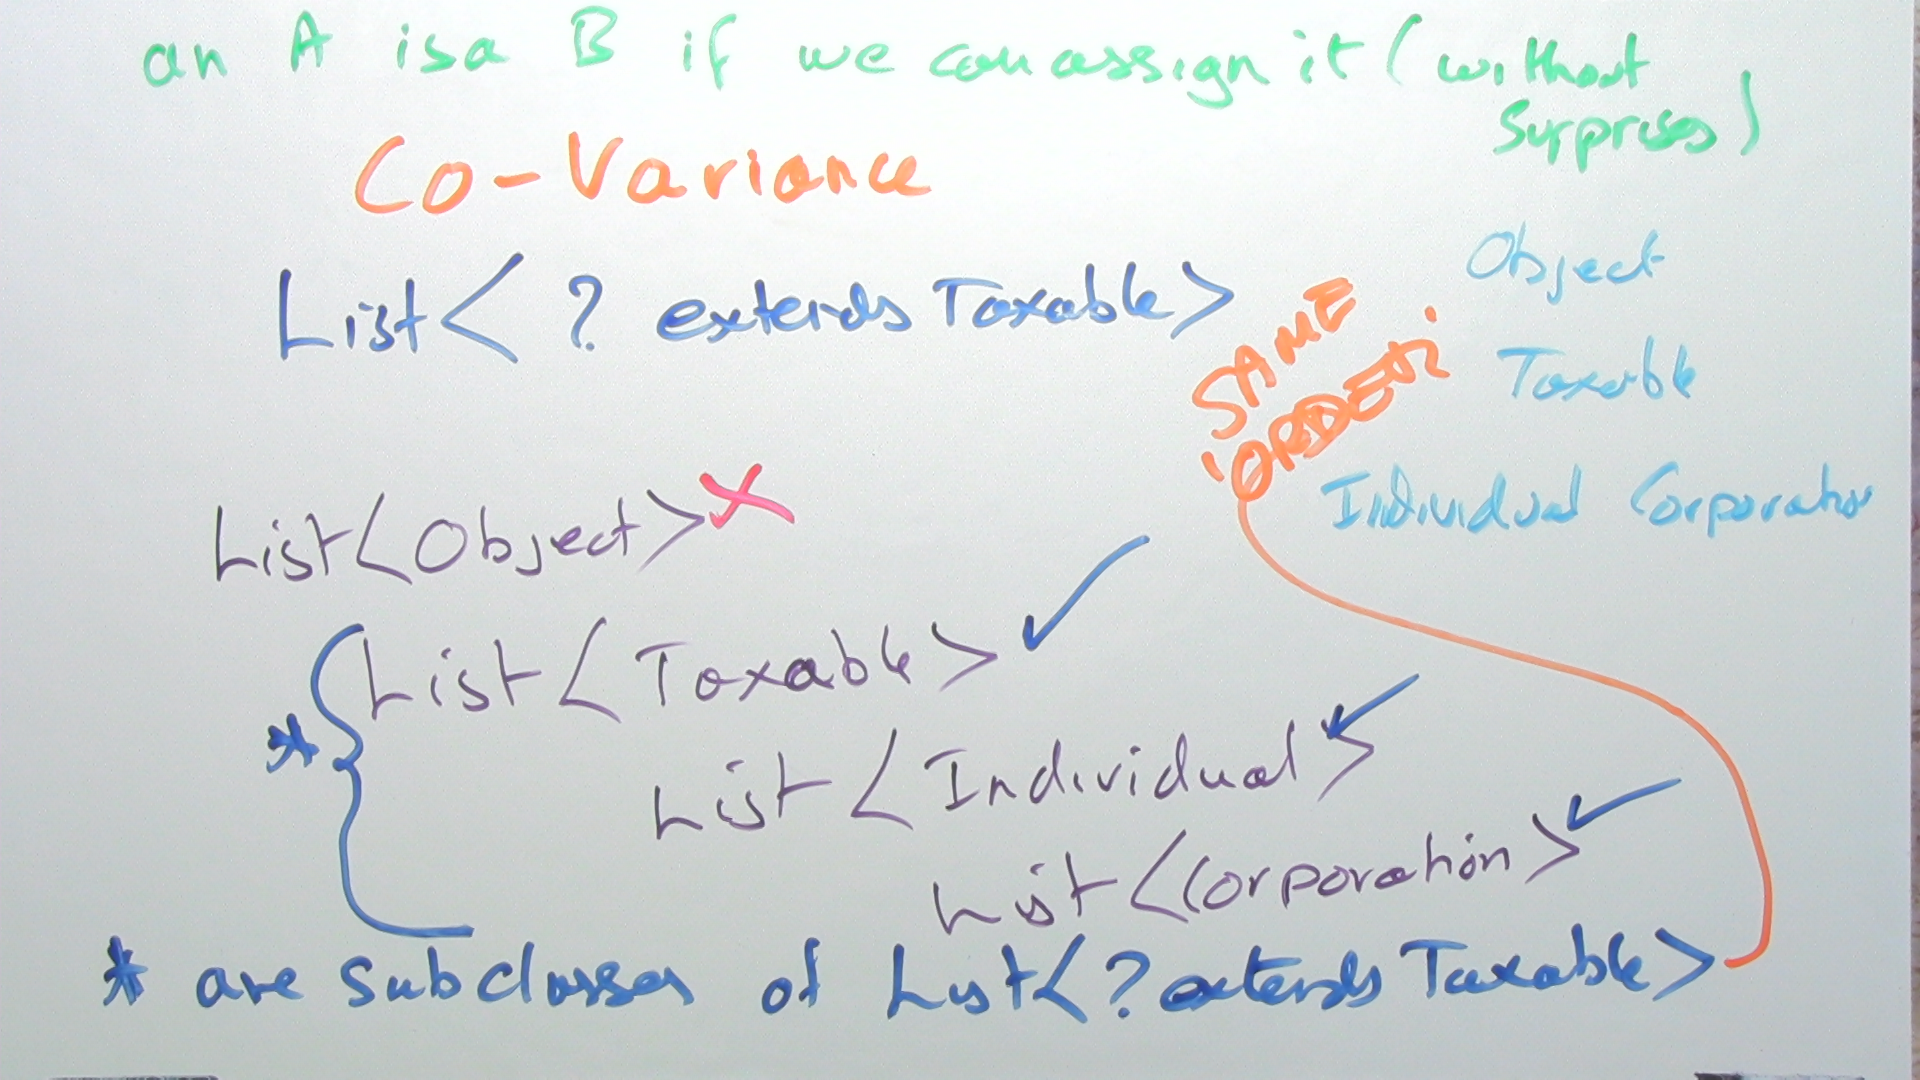 an A isa B if we can assign it (without
surprises)
Co-Variance
List< ? extends Taxable>
SAME
ORDER
Object
Taxable
Individual Corporation
List<Object> X
* { List<Taxable> ✓
List<Individual> ✓
List<Corporation> ✓
* are subclasses of List<? extends Taxable>